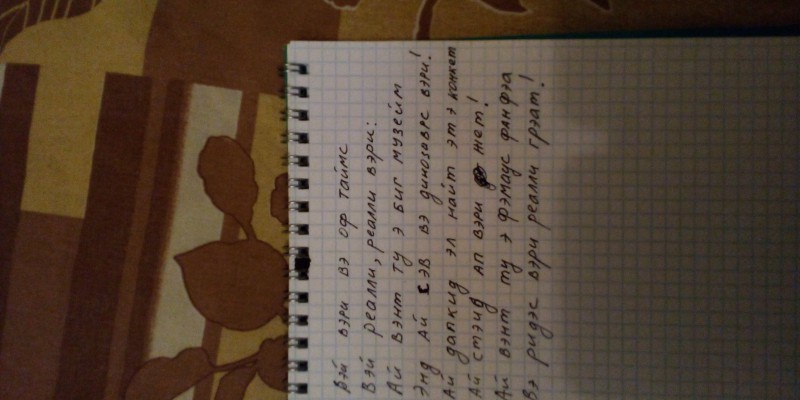 Вэй вэри вэ оф таймс
Вэй реалли, реалли вэри:
Ай вэнт ту э биг музейм
Энд ай сэв вэ динозаврс вэри!
Ай дапкид эл найт эт э конкет
Ай стэид ап вэри жет!
Ай вэнт ту э фэмаус фанфэа
Вэ ридэс вэри реалли грэат!